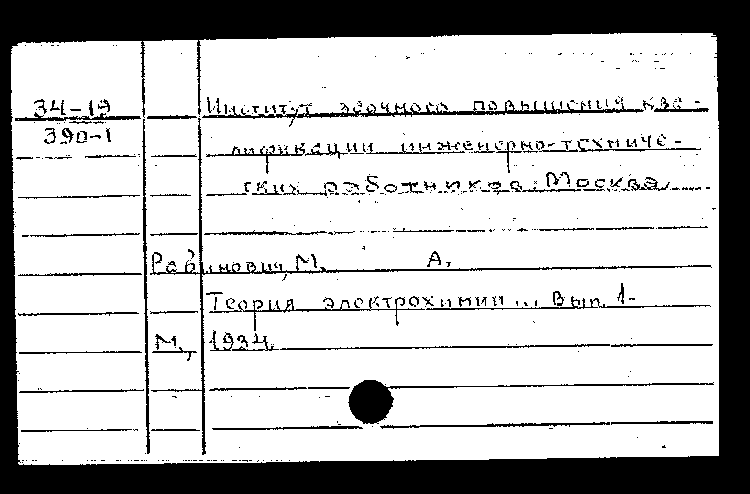 34-19
390-1
Институт заочного повышения ква-
лификации инженерно-техниче-
ских работников. Москва.
Рабинович, М. А.
Теория электрохимии... Вып. 1-
М., 1934.